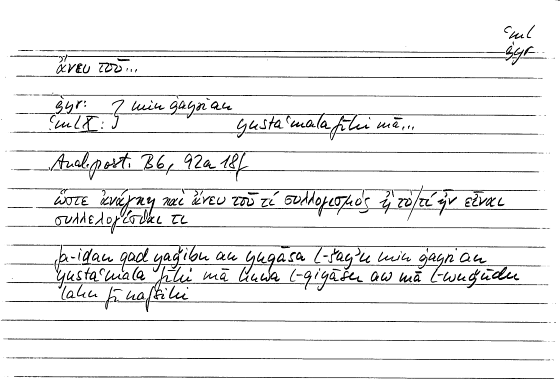 ʿml
ġyr
ἄνευ τοῦ...
ġyr: } min ġayri an
ʿml X: } yustaʿmala fīhi mā...
Anal. post. B6, 92a 18f
ὥστε ἀνάγκη καὶ ἄνευ τοῦ τί συλλογισμὸς ἢ τὸ/τί ἦν εἶναι
συλλελογίσθαι τι
fa-iḏan qad yaǧibu an yuqāsa l-šayʾu min ġayri an
yustaʿmala fīhi mā huwa l-qiyāsu aw mā l-wuǧūdu
lahu fī nafsihi